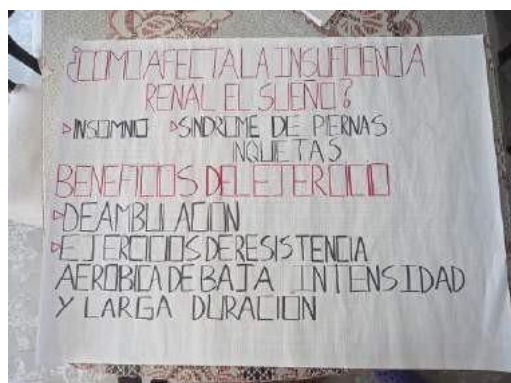 ¿COMO AFECTA LA INSUFICIENCIA
RENAL EL SUEÑO?
▹INSOMNIO ▹SINDROME DE PIERNAS
INQUIETAS
BENEFICIOS DEL EJERCICIO
▹DEAMBULACION
▹EJERCICIOS DE RESISTENCIA
AEROBICA DE BAJA INTENSIDAD
Y LARGA DURACION